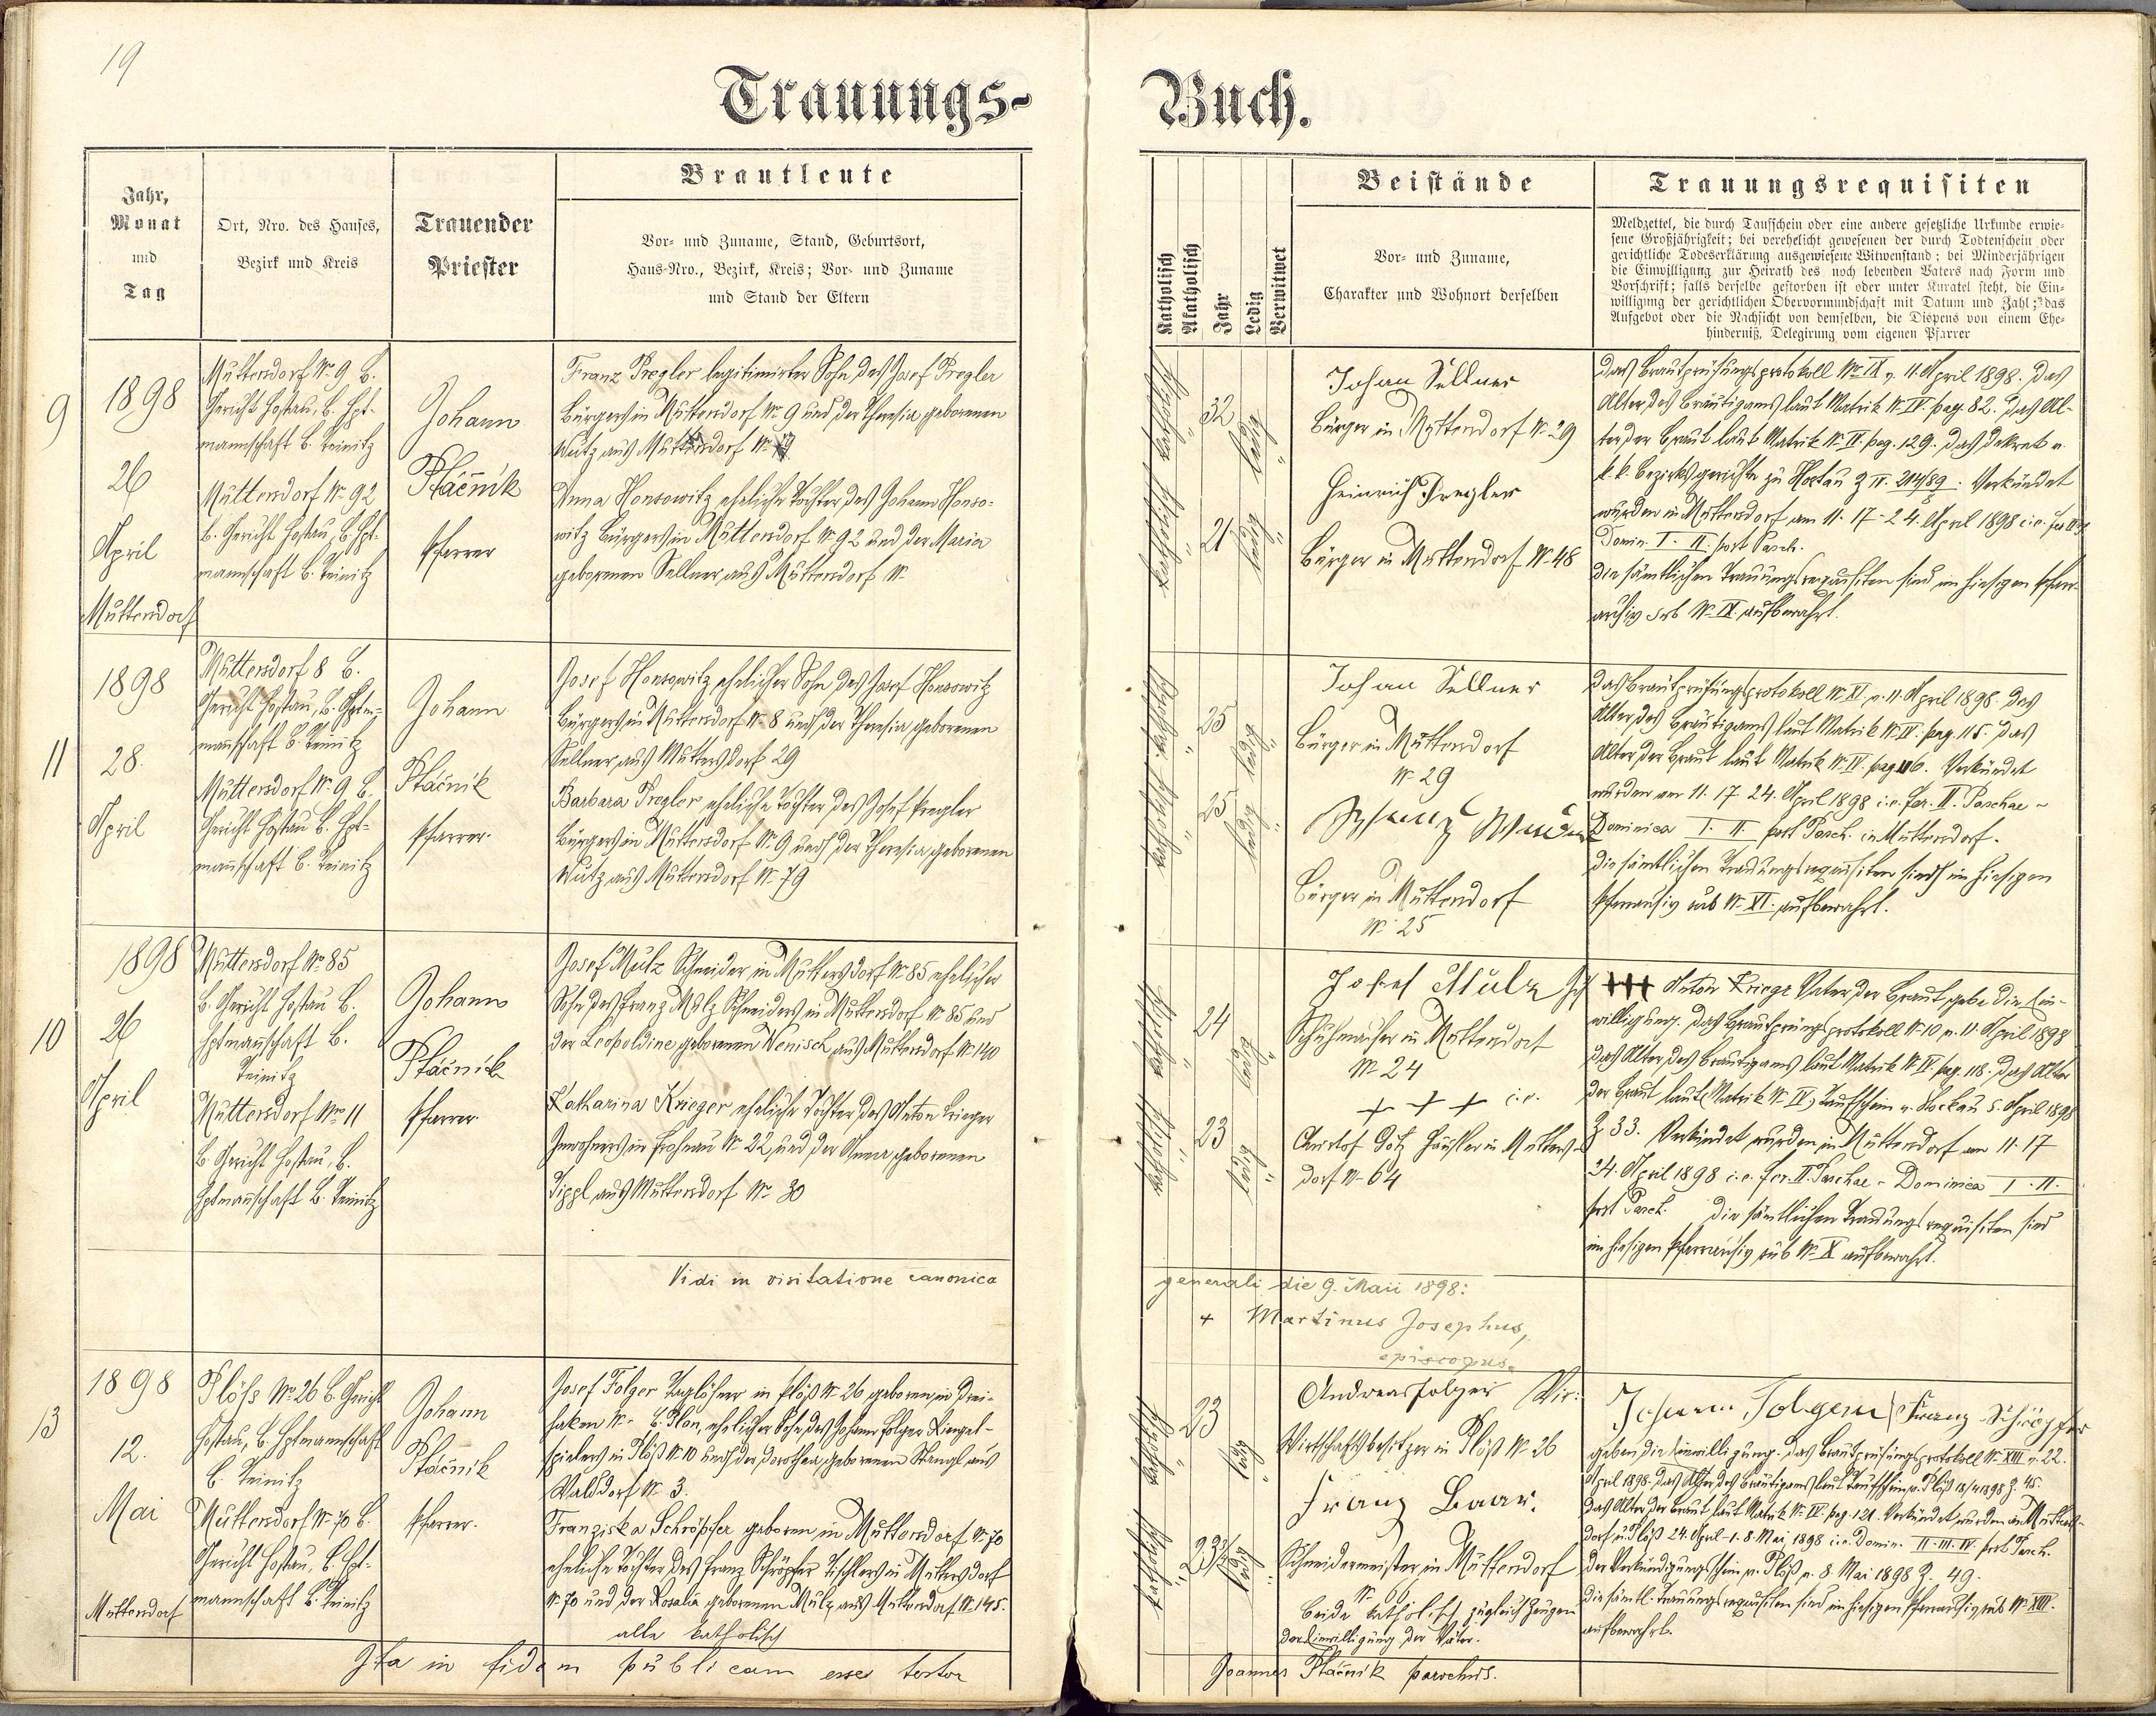 19
Trauungs-
Buch.
Jahr,
Monat
und
Tag
Ort, Nro. des Hauses,
Bezirk und Kreis
Trauender
Priester
Brautleute
Vor- und Zuname, Stand, Geburtsort,
Haus-Nro., Bezirk, Kreis; Vor- und Zuname
und Stand der Eltern
Katholisch
Akatholisch
Jahr
Ledig
Verwitwet
Beistände
Vor- und Zuname,
Charakter und Wohnort derselben
Trauungsrequisiten
Meldzettel, die durch Taufschein oder eine andere gesetzliche Urkunde erwie-
sene Großjährigkeit; bei verehelicht gewesenen der durch Todtenschein oder
gerichtliche Todeserklärung ausgewiesene Witwenstand; bei Minderjährigen
die Einwilligung zur Heirath des noch lebenden Vaters nach Form und
Vorschrift; falls derselbe gestorben ist oder unter Kuratel steht, die Ein-
willigung der gerichtlichen Obervormundschaft mit Datum und Zahl; das
Aufgebot oder die Nachsicht von demselben, die Dispens von einem Ehe-
hinderniß, Delegirung vom eigenen Pfarrer
9
1898
26
April
Muttersdorf
Muttersdorf N. 9 B.
Gericht Hostau, B. Hpt-
mannschaft B. Teinitz
Muttersdorf N. 92
B. Gericht Hostau, B. Hpt-
mannschaft B. Teinitz
Johann
Ptáčník
Pfarrer
Franz Pregler legitimirter Sohn des Josef Pregler
Bürgers in Muttersdorf N. 9 und der Theresia geborenen
Wutz aus Muttersdorf N.
Anna Honsowitz eheliche Tochter des Johann Honso-
witz Bürgers in Muttersdorf N. 92 und der Maria
geborenen Sellner aus Muttersdorf N.
katholisch
32
ledig
katholisch
21
ledig
Johan Sellner
Bürger in Muttersdorf N. 29
Heinrich Pregler
Bürger in Muttersdorf N. 48
Das Brautprüfungsprotokoll N. IX v. 11. April 1898. Das
Alter des Bräutigams laut Matrik N. IV. pag. 82. Das Al-
ter der Braut laut Matrik N. IV pag. 129. Das Dekret v.
k.k. Bezirksgerichte zu Hostau Z IV. 214/89. Verkündet
wurden in Muttersdorf am 11. 17 - 24. April 1898 i.e. fer. II
Domin. I. II. post Pasch.
Die sämtlichen Trauungsrequisiten sind im hiesigen Pfarr-
archiv sub N. IX aufbewahrt.
11
1898
28.
April
Muttersdorf 8 B.
Gericht Hostau, B. Hptm-
mannschaft B. Teinitz
Muttersdorf N. 9 B.
Gericht Hostau B. Hpt-
mannschaft B. Teinitz
Johann
Ptáčník
Pfarrer.
Josef Honsowitz ehelicher Sohn des Josef Honsowitz
Bürgers in Muttersdorf N. 8 und der Theresia geborenen
Sellner aus Muttersdorf 29
Barbara Pregler eheliche Tochter des Josef Pregler
Bürgers in Muttersdorf N. 9 und der Theresia geborenen
Wutz aus Muttersdorf N. 79
katholisch
25
ledig
katholisch
25
ledig
Johan Sellner
Bürger in Muttersdorf
N. 29
Bürger in Muttersdorf
N. 25
Das Brautprüfungsprotokoll N. XI. v. 11. April 1898. Das
Alter des Bräutigams laut Matrik N. IV. pag. 115. Das
Alter der Braut laut Matrik N. IV. pag. 116. Verkündet
wurden am 11. 17. 24. April 1898 i.e. fer. II. Paschae -
Dominica I. II. post Pasch. in Muttersdorf.
Die sämtlichen Trauungsrequisiten sind im hiesigen
Pfarrarchiv sub N. XI. aufbewahrt.
10
1898
26
April
Muttersdorf No. 85
B. Gericht Hostau B.
Hptmannschaft B.
Teinitz
Muttersdorf No. 11
B. Gericht Hostau, B.
Hptmannschaft B. Teinitz
Johann
Ptáčník
Pfarrer.
Josef Mulz Schneider in Muttersdorf N. 85 ehelicher
Sohn des Franz Mulz Schneiders in Muttersdorf N. 85 und
der Leopoldine geborenen Wenisch aus Muttersdorf N. 140
Katharina Krieger eheliche Tochter des Anton Krieger
Inwohners in Frohnau N. 22 und der Anna geborenen
Tippl aus Muttersdorf N. 30
katholisch
24
ledig
katholisch
23
ledig
Josef Mulz
Schuhmacher in Muttersdorf
N. 24
+ + + i.e.
Christof Götz Häusler in Mutters-
dorf N. 64
Ich +++ Anton Krieger Vater der Braut gebe die Ein-
willigung. Das Brautprüfungsprotokoll N. 10 v. 11. April 1898
Das Alter des Bräutigams laut Matrik N. IV pag. 118. Das Alter
der Braut laut (Matrik N. IV) Taufschein v. 5. April 1898
Z. 33. Verkündet wurden in Muttersdorf am 11. 17
24. April 1898 i.e. fer. II. Paschae - Dominica I. II.
post Pasch. Die sämtlichen Trauungsrequisiten sind
im hiesigen Pfarrarchiv sub N. X aufbewahrt.
Vidi in visitatione canonica
generali die 9. Maii 1898:
+ Martinus Josephus,
episcopus.
13
1898
12.
Mai
Muttersdorf
Plöss No. 26 B. Gericht
Hostau, B. Hptmannschaft
B. Teinitz
Muttersdorf N. 70 B.
Gericht Hostau, B. Hpt-
mannschaft B. Teinitz
Johann
Ptáčník
Pfarrer.
Josef Folger Taglöhner in Plöß N. 26 geboren in Drei-
haken N. - B. Plan, ehelicher Sohn des Johann Folger Ringel-
spielers in Plöß N. 10 und der Dorothea geborenen Stangl aus
Walddorf N. 3.
Franziska Schröpfer geboren in Muttersdorf N. 70
eheliche Tochter des Franz Schröpfer Tischlers in Muttersdorf
N. 70 und der Rosalia geborenen Mulz aus Muttersdorf N. 145.
alle katholisch
katholisch
23
ledig
katholisch
23½
ledig
Andreas Folger
Wirtschaftsbesitzer in Plöß N. 26
Franz Baar.
Schneidermeister in Muttersdorf
N. 66
Beide katholisch, zugleich Zeugen
der Einwilligung der Väter.
Wir: Johann Folger Franz Schröpfer
geben die Einwilligung. Das Brautprüfungsprotokoll N. XIII v. 22.
April 1898. Das Alter des Bräutigams laut Taufschein v. Plöß 18/4 1898 Z. 45.
Das Alter der Braut laut Matrik N. IV pag. 121. Verkündet wurden in Mutters-
dorf u. Plöß 24. April - 1. 8. Mai 1898 i.e. Domin. II. III. IV. post Pasch.
Der Verkündigungsschein v. Plöß v. 8. Mai 1898 Z. 49.
Die sämtl. Trauungsrequisiten sind im hiesigen Pfarrarchiv sub N. XIII.
aufbewahrt.
Ita in fidem publicam esse testor
Joannes Ptáčník parochus.